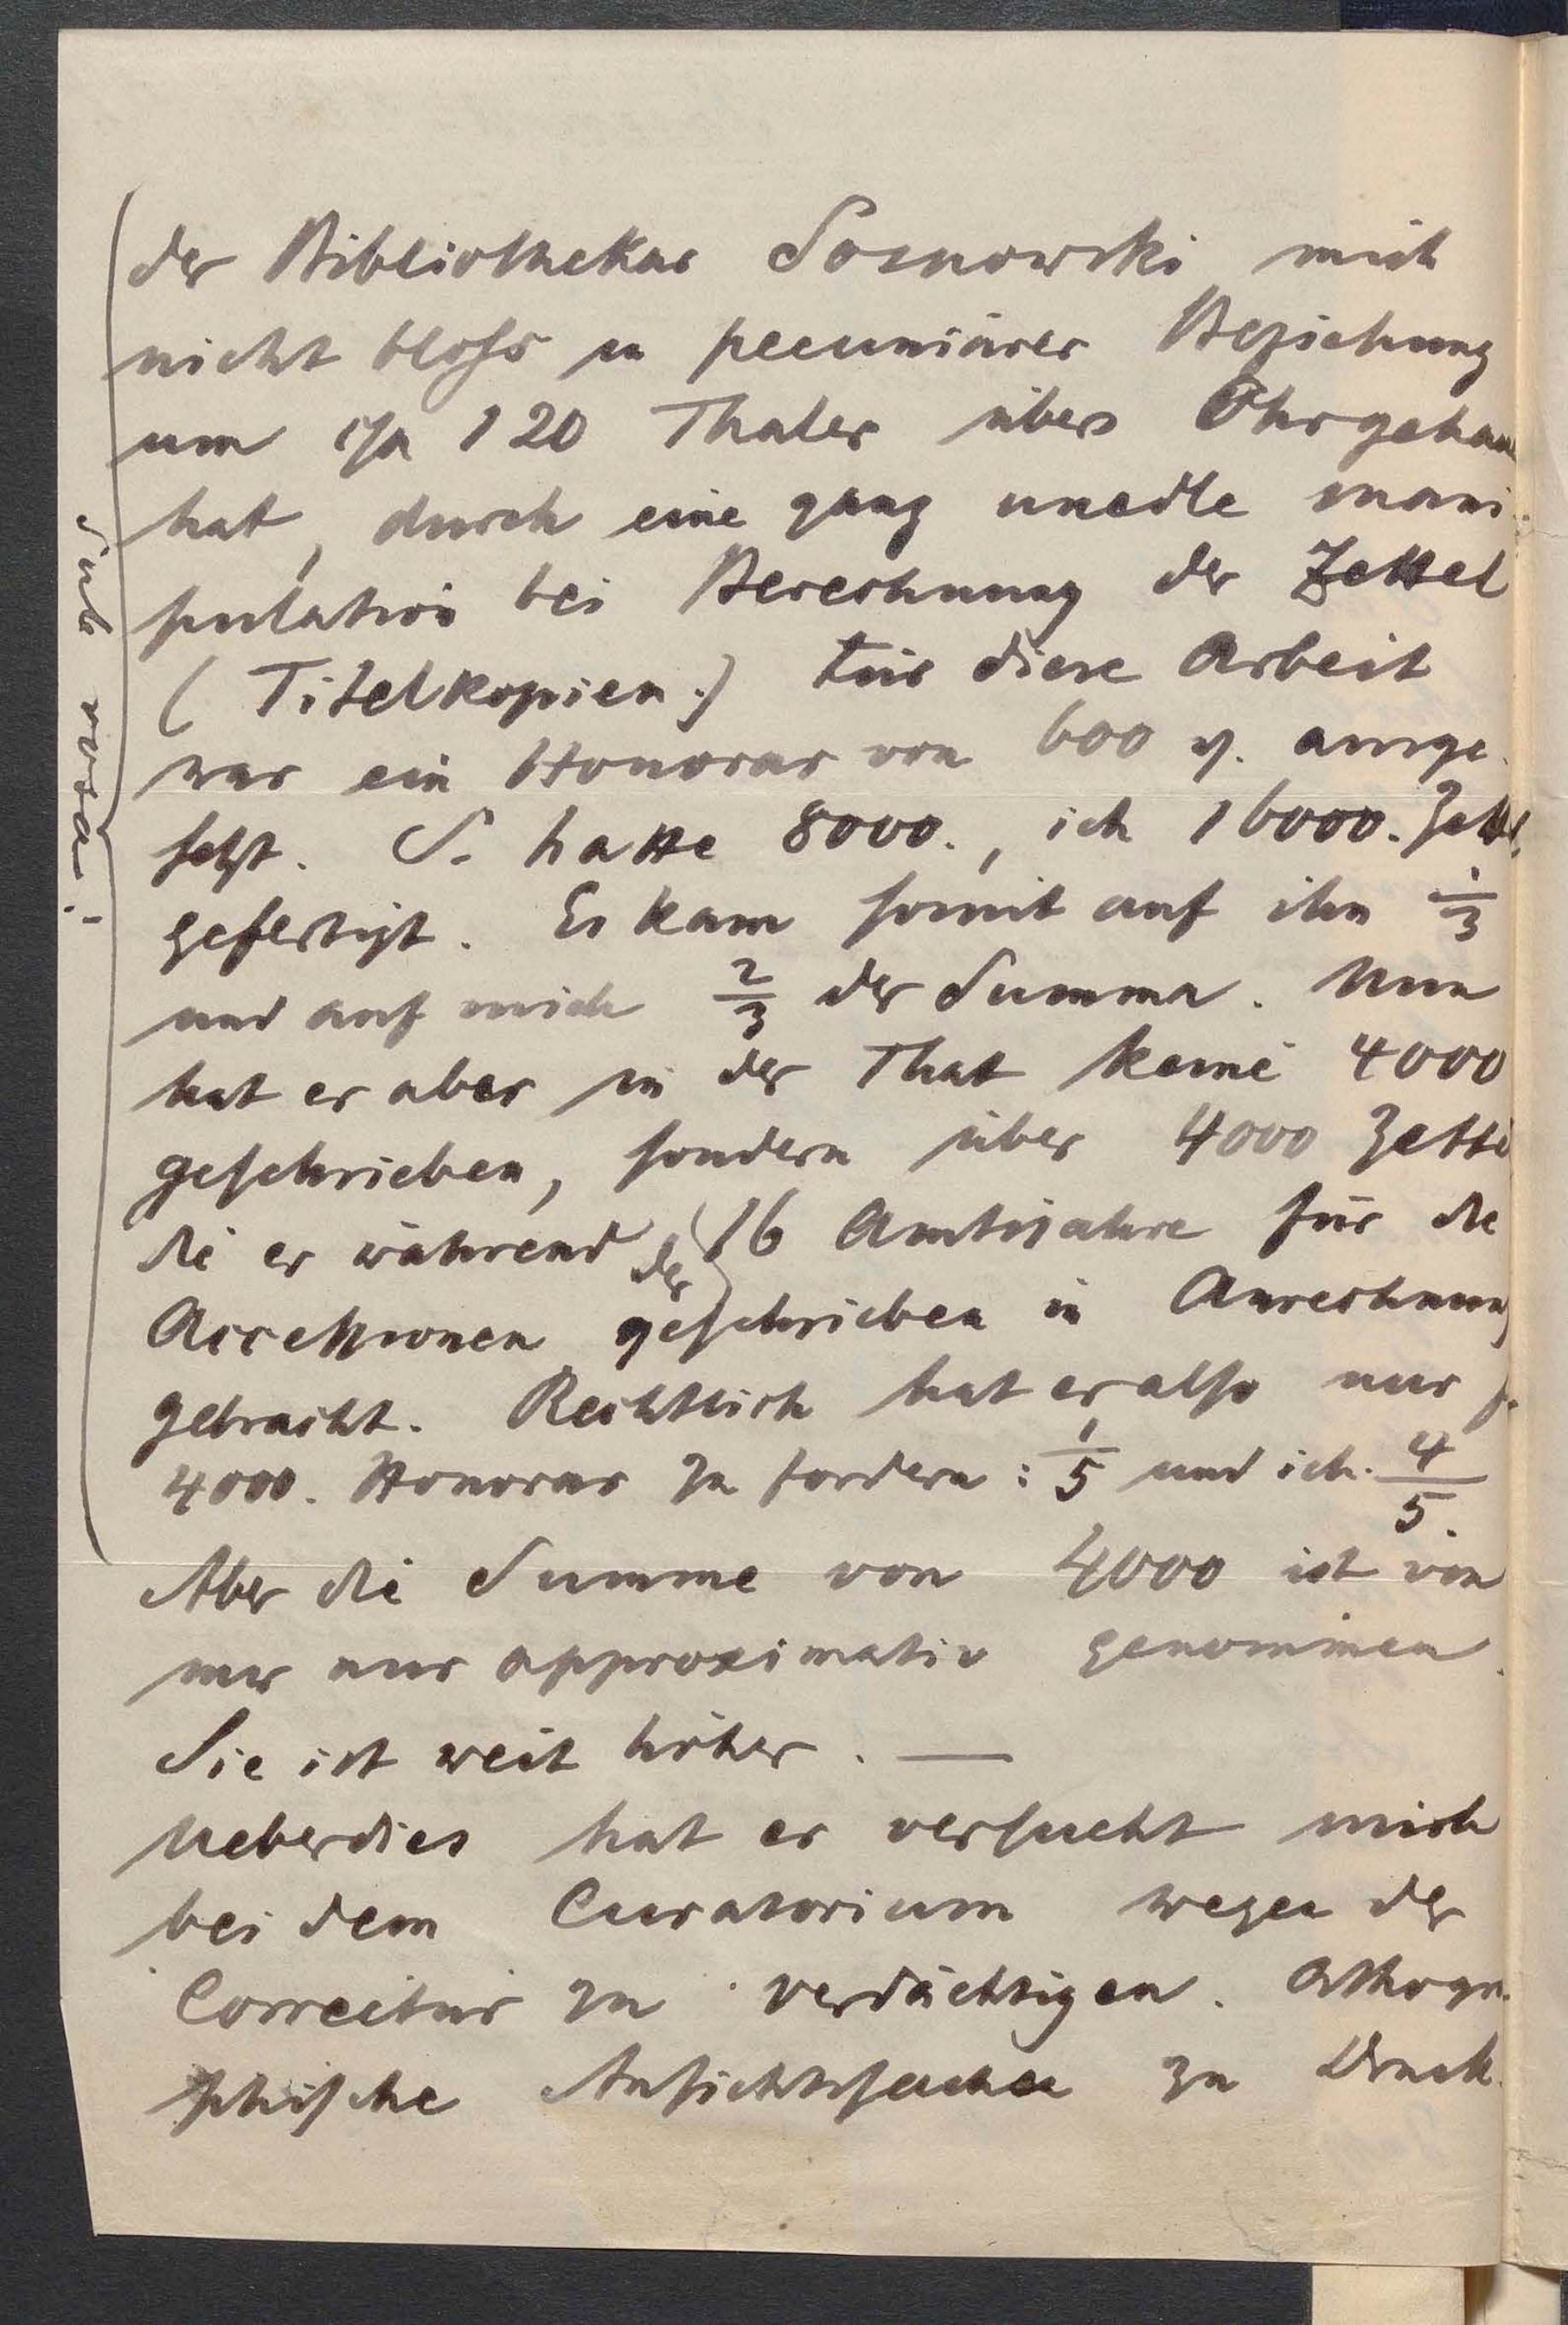 der Bibliothekar Sosnowski mich
nicht bloss in pecuniärer Beziehung
um c/a 120 Thaler übers Ohr gehauen
hat, durch eine ganz unedle mani-
pulation bei Berechnung der Zettel
(Titelkopien.) Für diese Arbeit
war ein Honorar von 600 ausge-
setzt. S. hatte 8000., ich 16000. Zettel
gefertigt. Es kam somit auf ihn 1/3
und auf mich 2/3 der Summa. Nun
hat er aber in der That keine 4000
geschrieben, sondern über 4000 Zettel
die er während der 16 Amtsjahre für die
Accessionen geschrieben in Anrechnung
gebracht. Rechtlich hat er also nur f.
4000. Honorar zu fordern: 1/5 und ich. 4/5.
Aber die Summe von 4000 ist von
mir nur approximativ genommen.
Sie ist weit höher. —
Ueberdies hat er versucht mich
bei dem Curatorium wegen der
Correctur zu verdächtigen. Orthogra-
phische Ansichtssachen zu Druck-
Sub rosa!